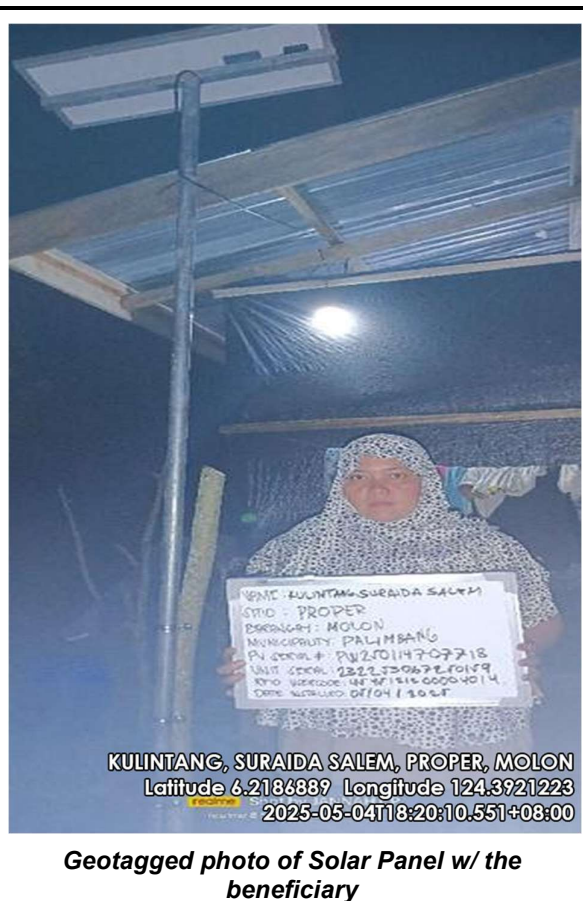 NAME : KULINTANG, SURAIDA SALEM
SITIO : PROPER
BARANGAY : MOLON
MUNICIPALITY : PALIMBANG
PV SERIAL # : PW250114707718
UNIT SERIAL :
DATE INSTALLED : 05/04/2025
KULINTANG, SURAIDA SALEM, PROPER, MOLON
Latitude 6.2186889 Longitude 124.3921223
realme
2025-05-04T18:20:10.551+08:00
Geotagged photo of Solar Panel w/ the
beneficiary